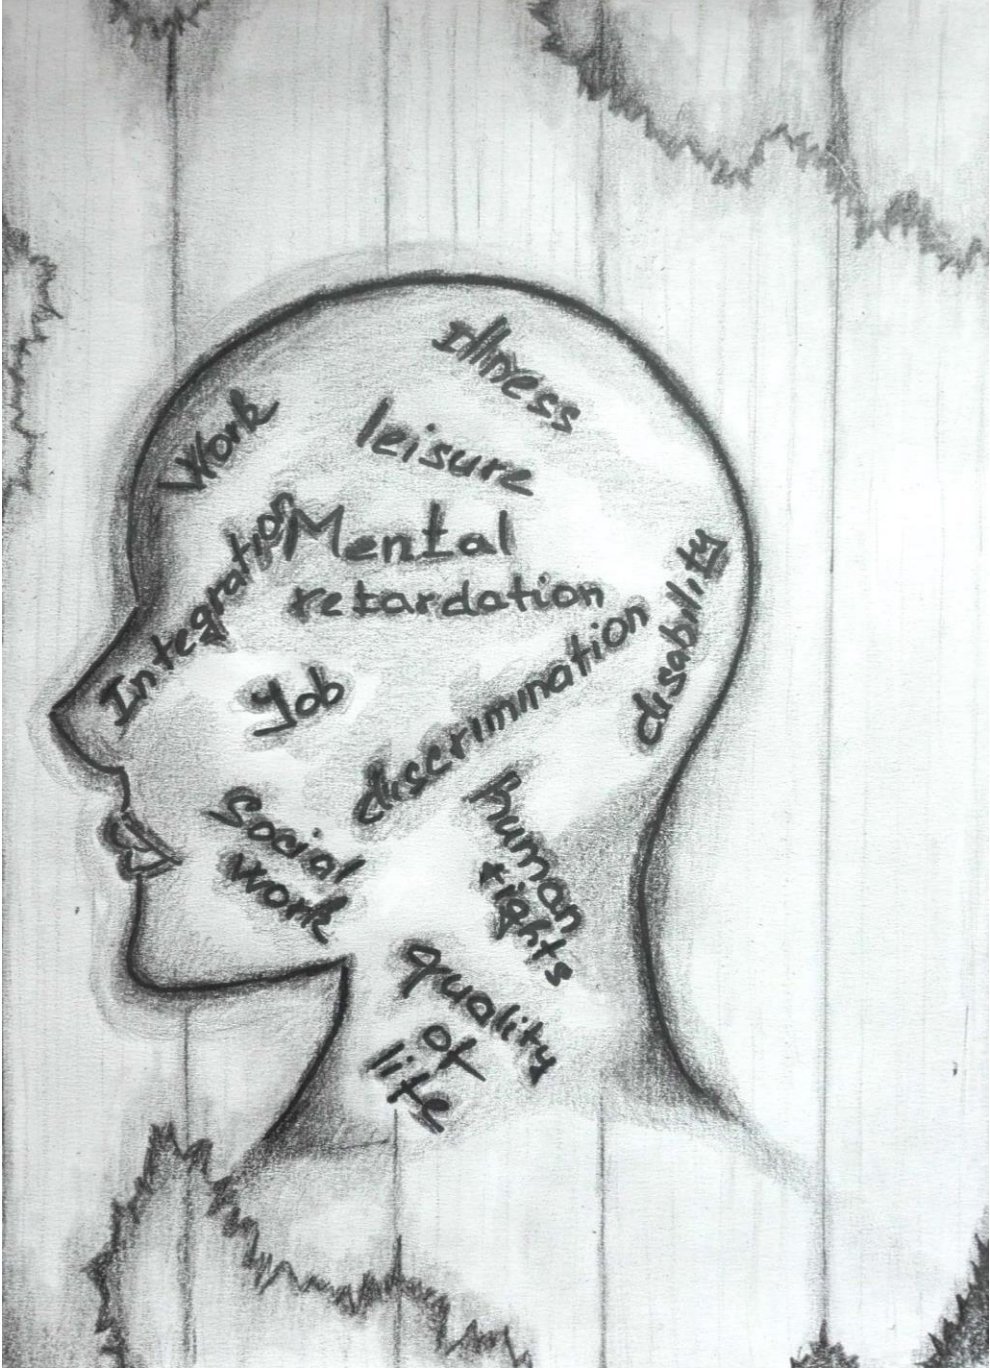 Illness
Work
leisure
Integration
Mental
retardation
disability
Job
discrimination
Social
work
human
rights
quality
of
life